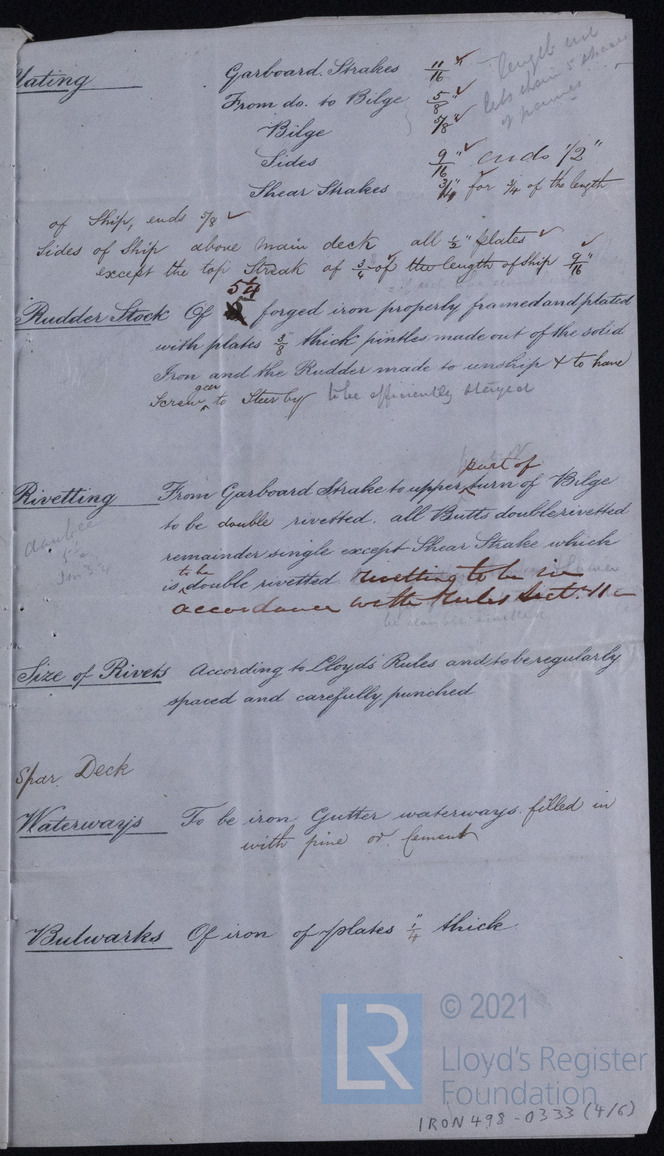 lating Garboard. Strakes 11/16"
From do. to Bilge 5/8"
Bilge 5/8"
Sides 9/16" ends 1/2"
Shear Strakes 3/4" for 3/4 of the length
length not
less than 5 spaces
of frames
of Ship, ends 5/8
Sides of Ship above main deck all 1/2" plates
except the top Streak of 3/4 of the length of Ship 9/16"
Rudder Stock Of 5 1/4 forged iron properly framed and plated
with plates 3/8" thick pintles made out of the solid
Iron and the Rudder made to unship & to have
Screw gear to Steer by to be efficiently stayed
Rivetting From Garboard Strake to upper part of turn of Bilge
to be double rivetted. all Butts double rivetted
remainder single except Shear Strake which
is to be double rivetted rivetting to be in
accordance with Rules Sect. 11
Size of Rivets According to Lloyds' Rules and to be regularly
spaced and carefully punched
Spar Deck
Waterways To be iron Gutter waterways. filled in
with pine or Cement
Bulwarks Of iron of plates 1/4" thick
LR © 2021
Lloyd's Register
Foundation
IRON 498-0333 (4/6)